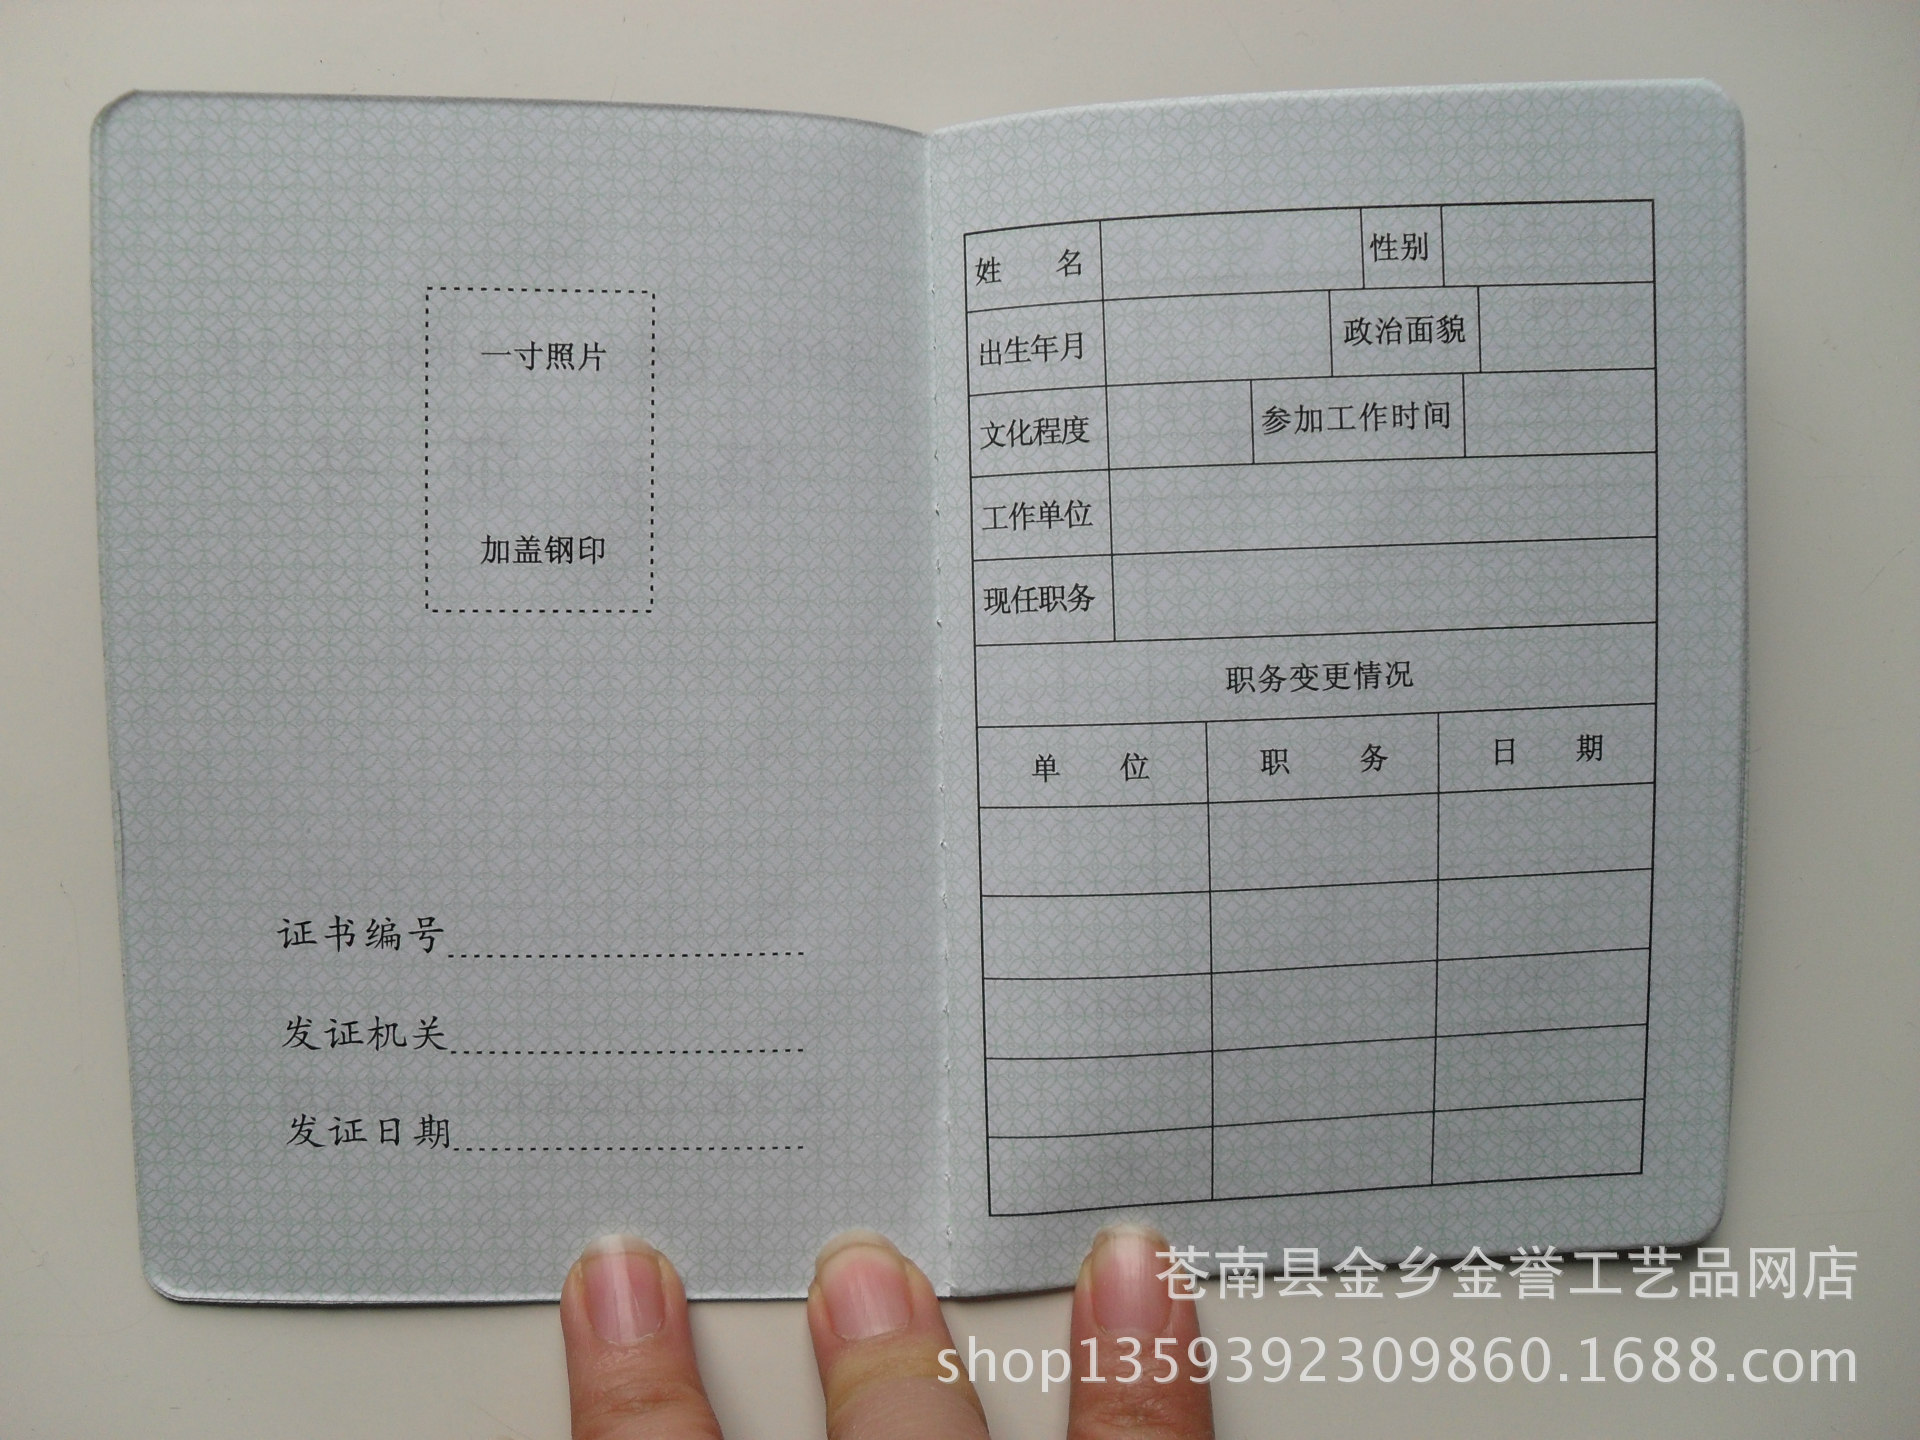 一寸照片
加盖钢印
证书编号
发证机关
发证日期
姓 名 性别
出生年月 政治面貌
文化程度 参加工作时间
工作单位
现任职务
职务变更情况
单 位 职 务 日 期
苍南县金乡金誉工艺品网店
shop1359392309860.1688.com